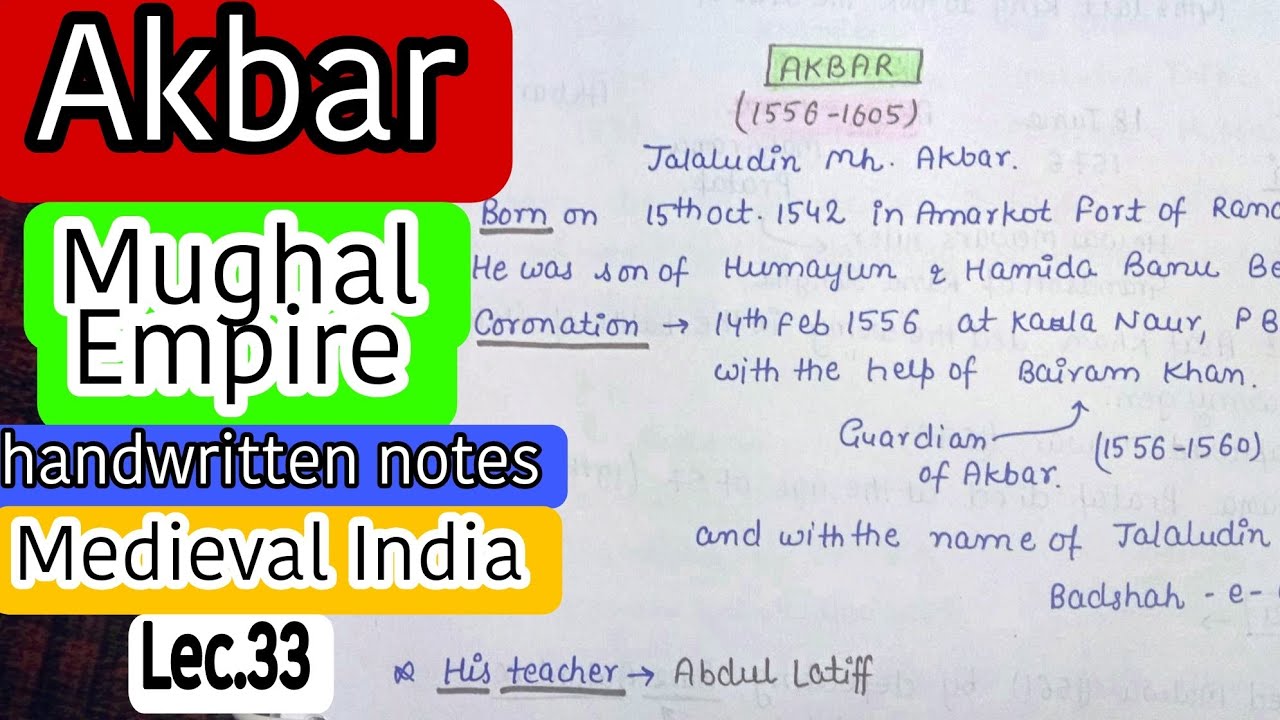 Akbar
Mughal
Empire
handwritten notes
Medieval India
Lec.33
AKBAR
(1556-1605)
Jalaludin Mh. Akbar.
Born on 15th oct. 1542 in Amarkot Fort of Rana
He was son of Humayun & Hamida Banu Be
Coronation → 14th Feb 1556 at Kaala Naur, PB
with the help of Bairam Khan.
Guardian (1556-1560)
of Akbar.
and with the name of Jalaludin
Badshah - e -
* His teacher → Abdul Latiff